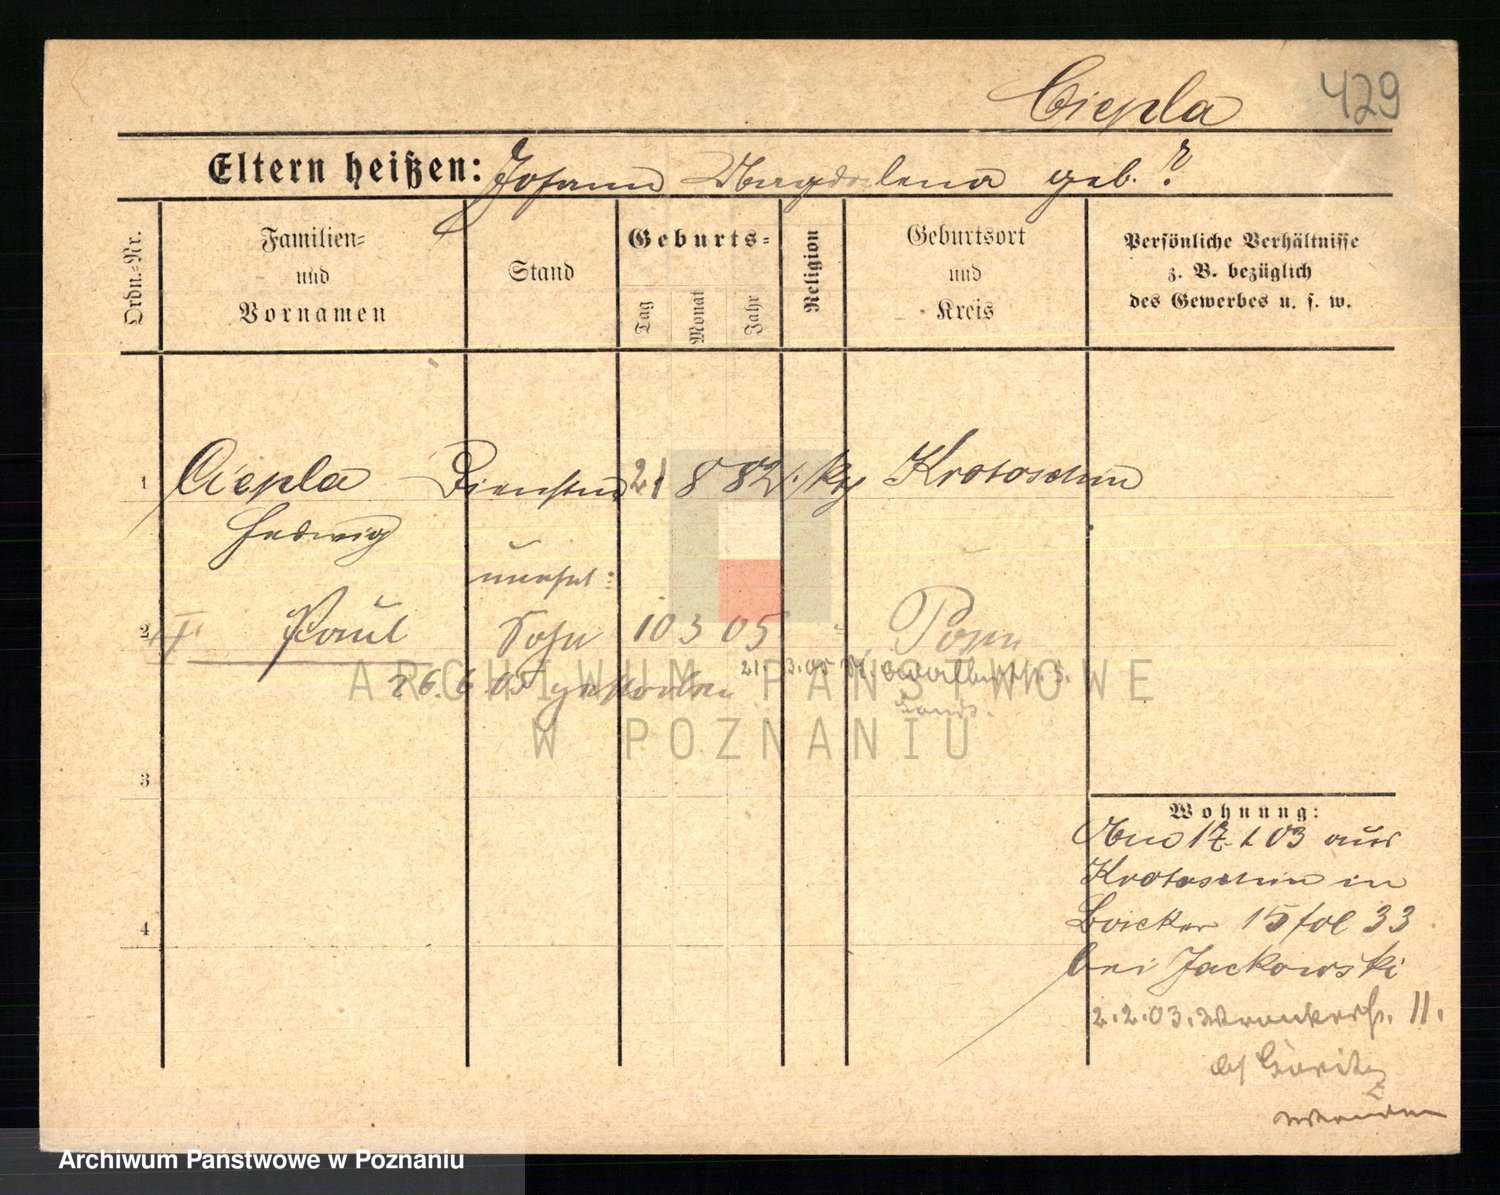 Ciepla 429
Eltern heißen: Johann Magdalena geb. ?
Ordn.-Nr.
Familien-
und
Vornamen
Stand
Geburts-
Tag
Monat
Jahr
Religion
Geburtsort
und
Kreis
Persönliche Verhältnisse
z. B. bezüglich
des Gewerbes u. s. w.
1 Ciepla 21 8 82 Krotoschin
Hedwig
unehel:
2 Paul Sohn 10 3 05 Posen
26.6.05 gestorben
ARCHIWUM PAŃSTWOWE
W POZNANIU
3
4
Wohnung:
03 aus
Krotoschin in
15 fol 33
bei Jackowski
2.2.03. Wronkerstr. 11.
Archiwum Państwowe w Poznaniu